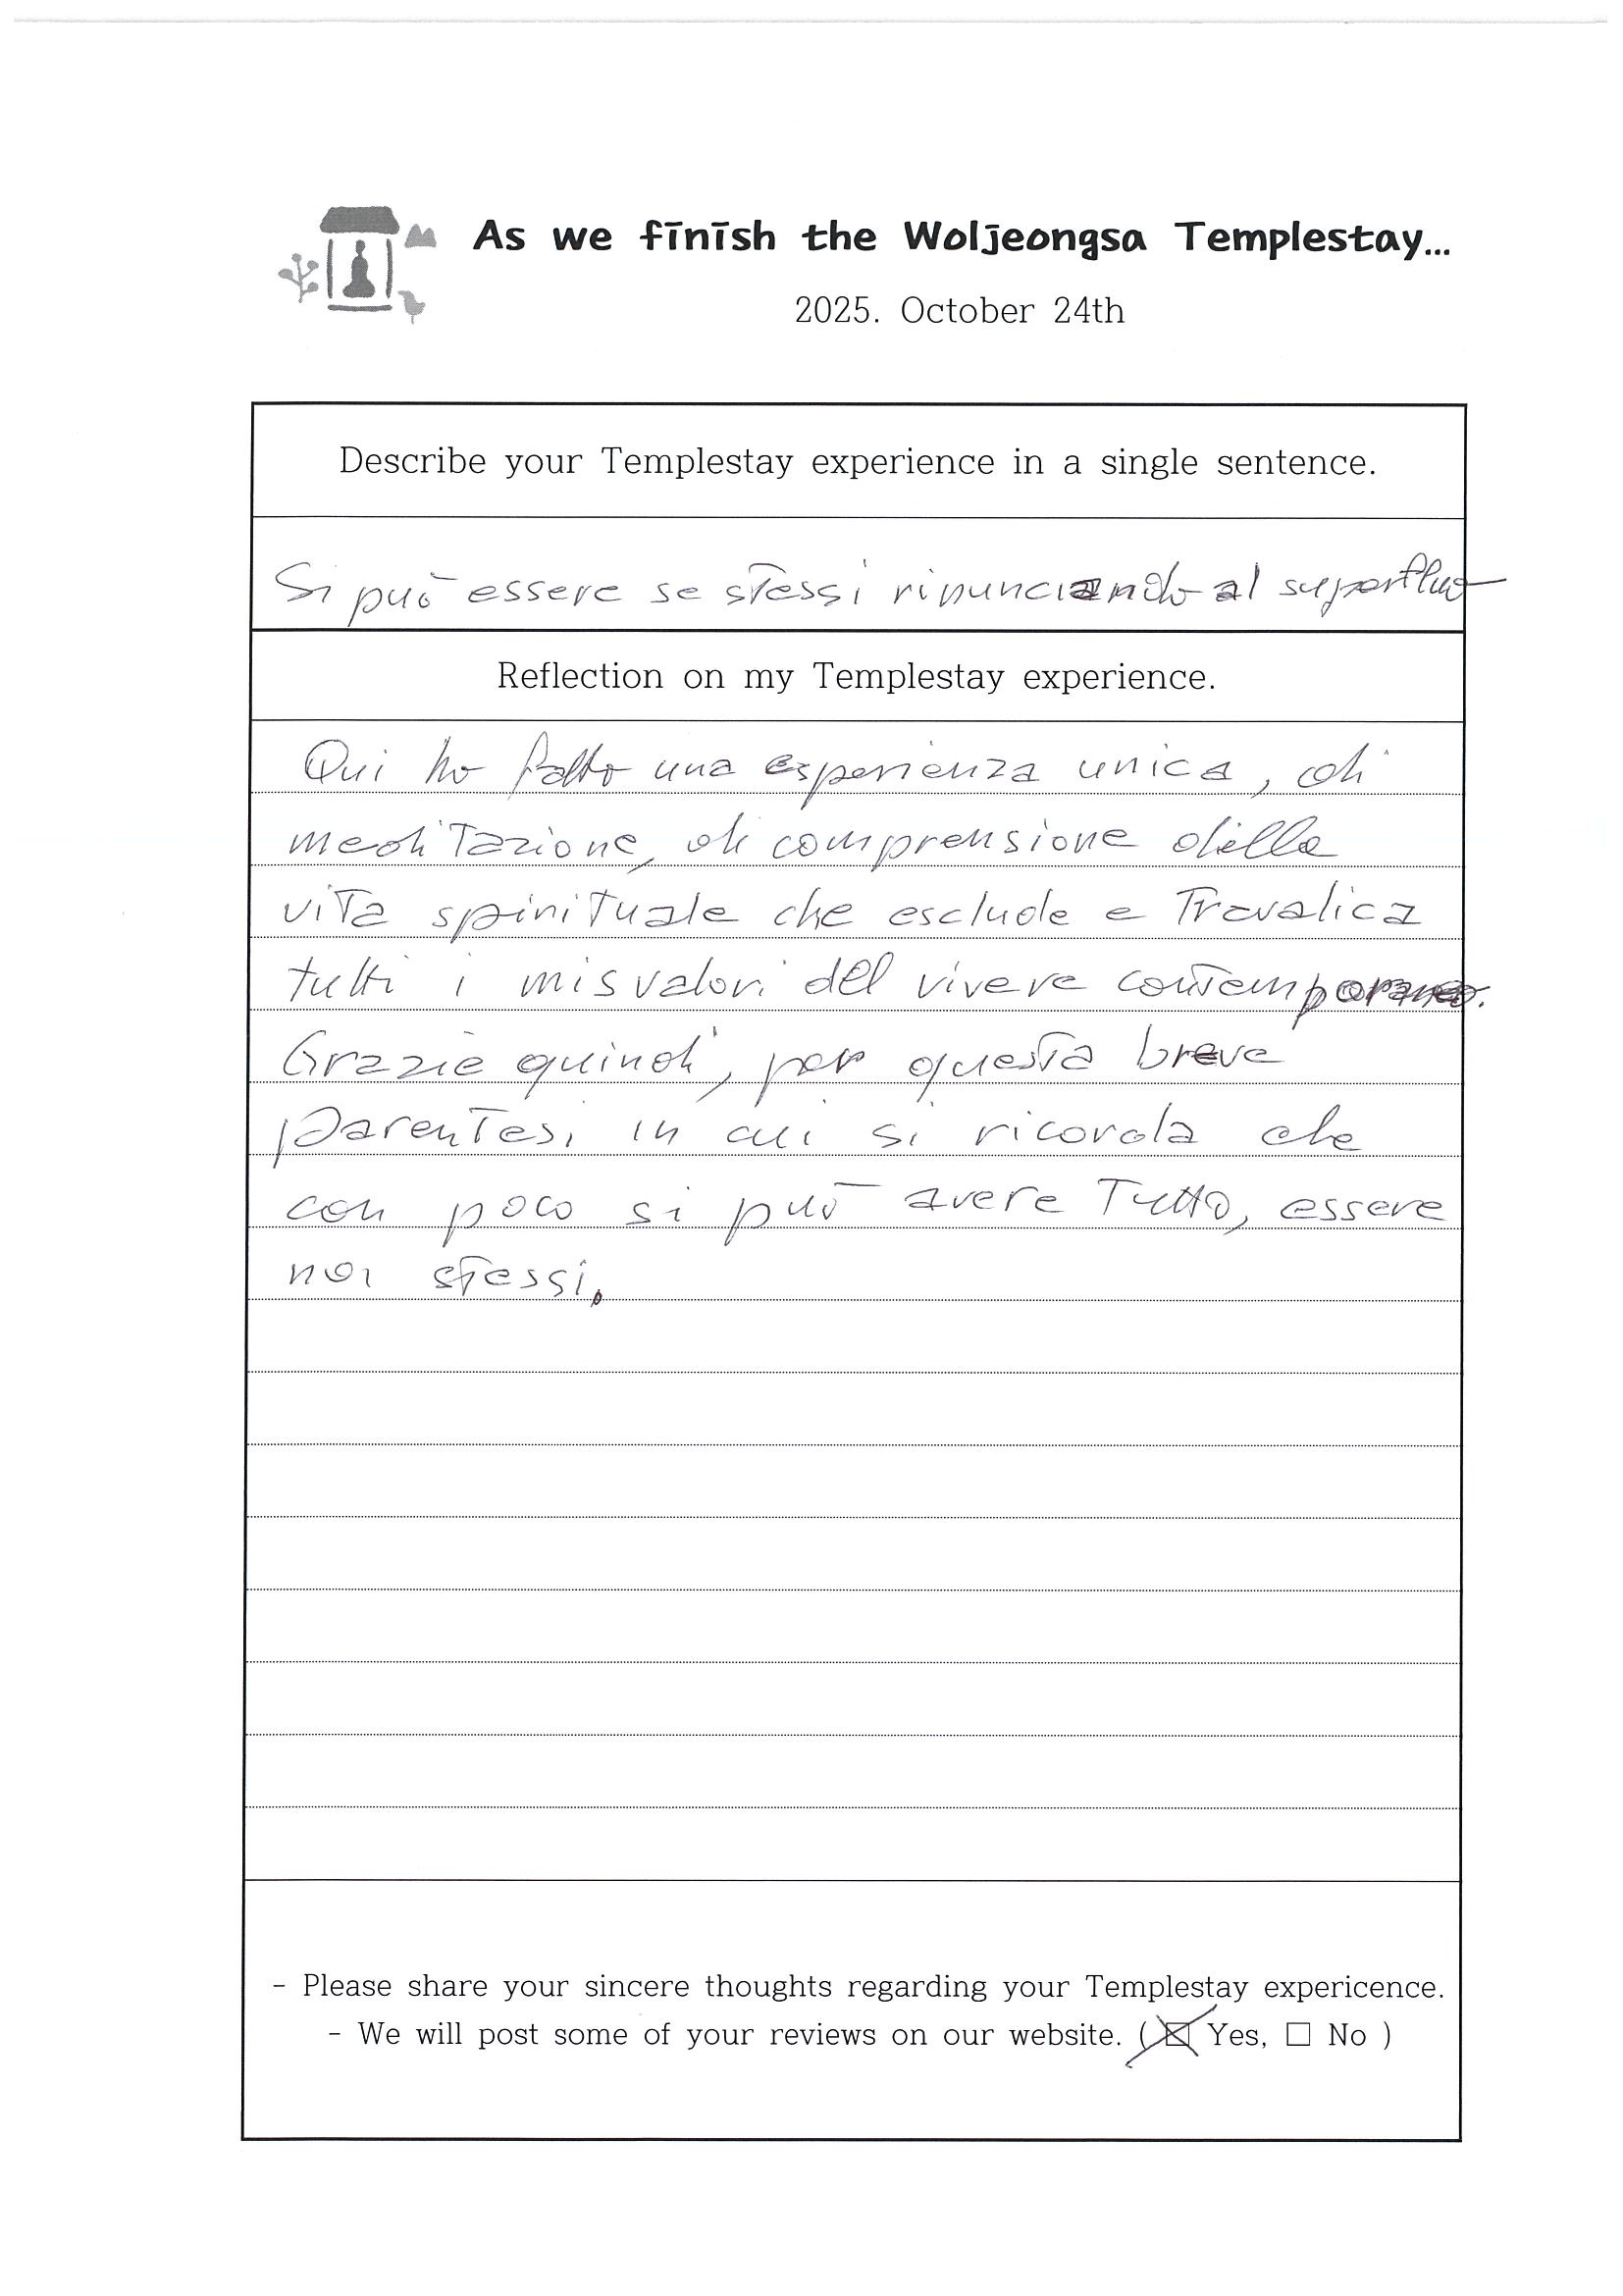 As we finish the Woljeongsa Templestay...
2025. October 24th
Describe your Templestay experience in a single sentence.
Si può essere se stessi rinunciando al superfluo
Reflection on my Templestay experience.
Qui ho fatto una esperienza unica, di
meditazione, di comprensione della
vita spirituale che esclude e Travalica
tutti i misvalori del vivere contemporaneo.
Grazie quindi, per questa breve
parentesi in cui si ricorda che
con poco si può avere Tutto, essere
noi stessi.
- Please share your sincere thoughts regarding your Templestay expericence.
- We will post some of your reviews on our website. ( ☒ Yes, ☐ No )